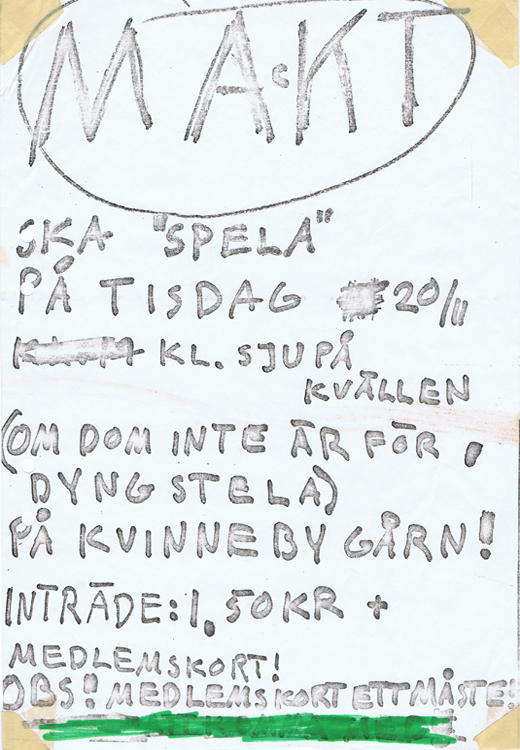 MAcKT
SKA "SPELA"
PÅ TISDAG 20/11
KL. SJU PÅ
KVÄLLEN
(OM DOM INTE ÄR FÖR
DYNGSTELA)
PÅ KVINNEBY GÅRN!
INTRÄDE: 1,50 KR +
MEDLEMSKORT!
OBS! MEDLEMSKORT ETT MÅSTE!